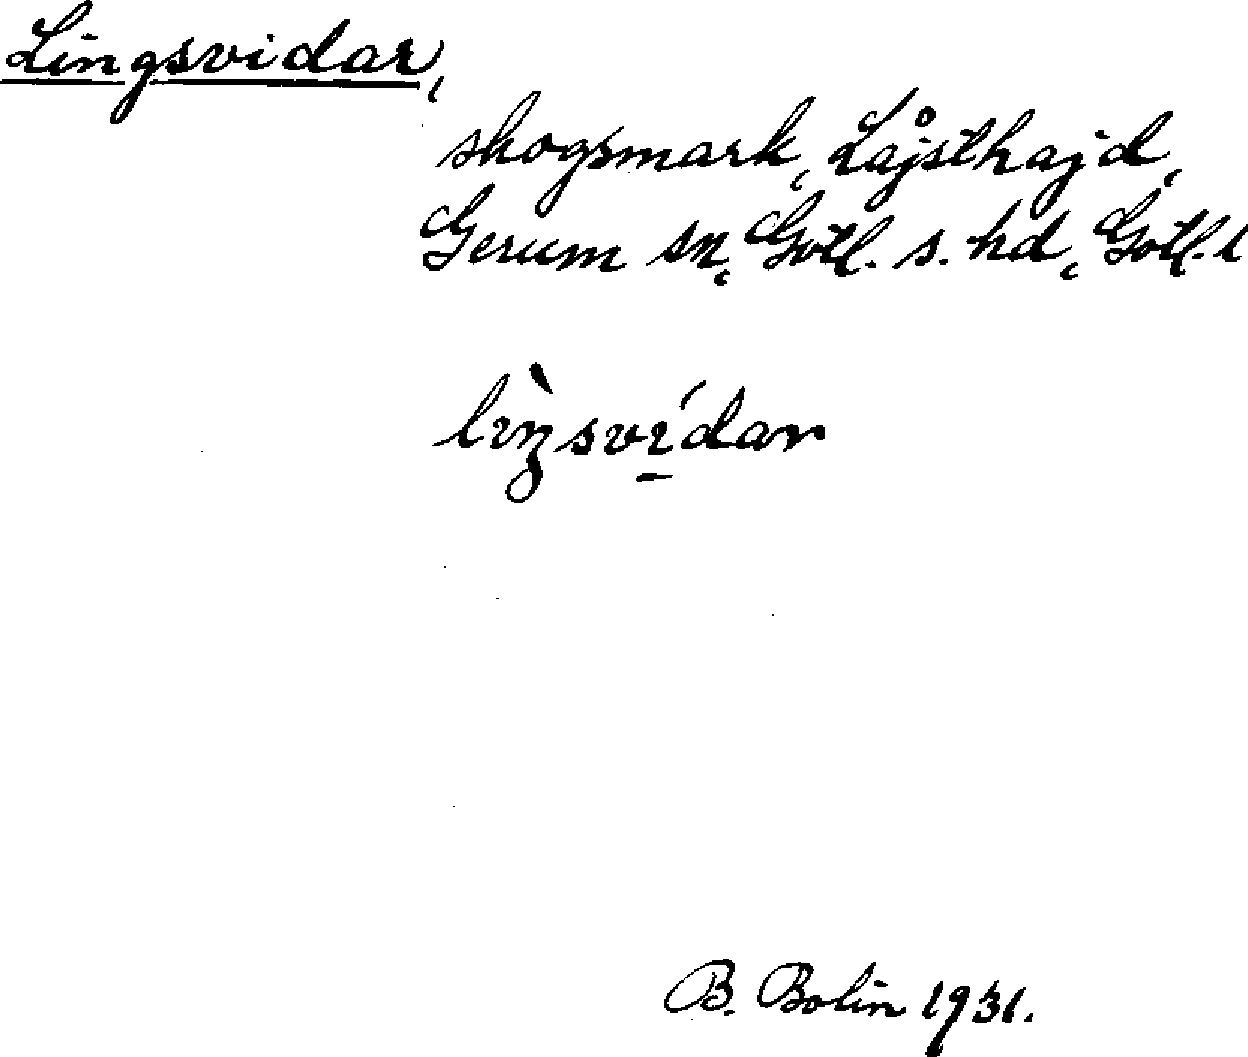 Lingsvidar,
skogsmark, Låjsthajd,
Gerum sn, Gotl. s. hd, Gotl. l
lıŋ̀svı̱́dar
B. Bolin 1931.